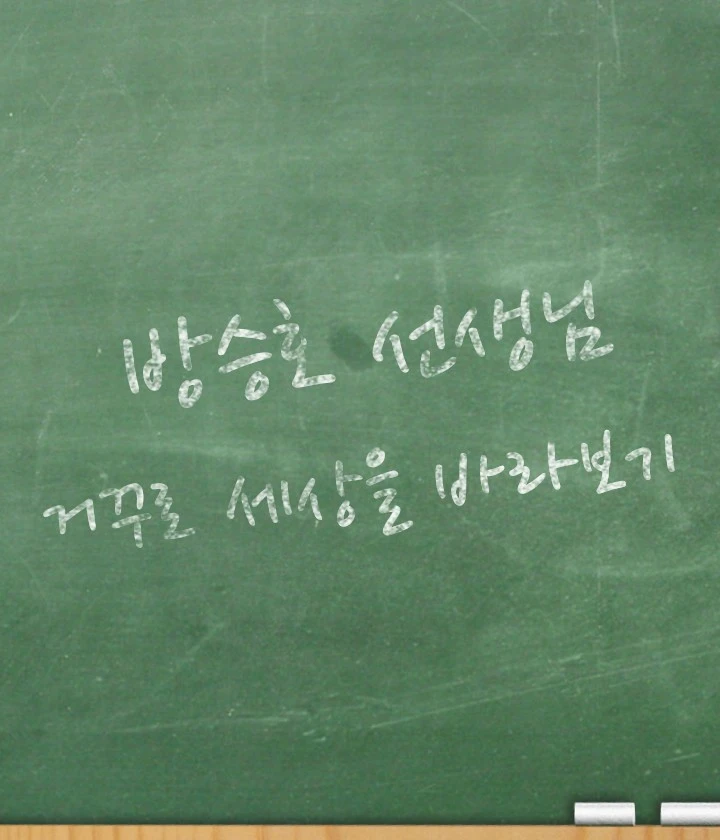 방승호 선생님
거꾸로 세상을 바라보기